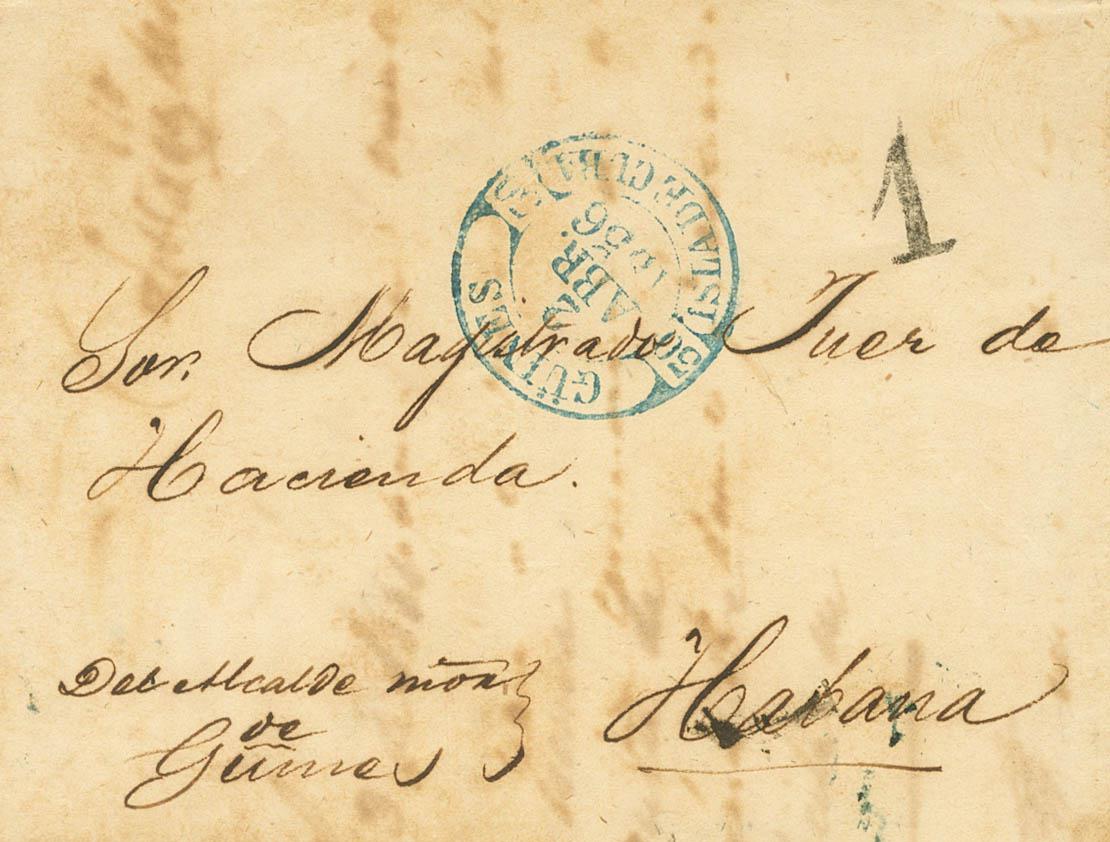 1
GÜINES
ISLA DE CUBA
ABR.
1856
Sor. Magistrado Juez de
Hacienda.
Del Alcalde mõr
de
Güines
Habana